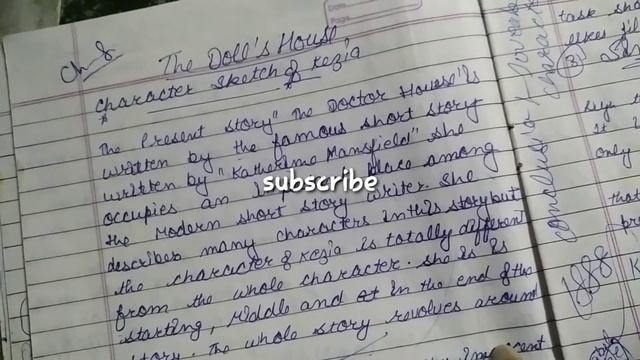 Ch-8
The Doll's House
Character Sketch of Kezia
The Present story "The Doctor House" is
written by the famous short story
written by "Katherine Mansfield" She
occupies an place among
the Modern short story writer. She
describes many characters in this story but
the character of Kezia is totally different
from the whole character. She is is
starting, Middle and at in the end of the
story. The whole story revolves around
subscribe
task
only
that
conclusion